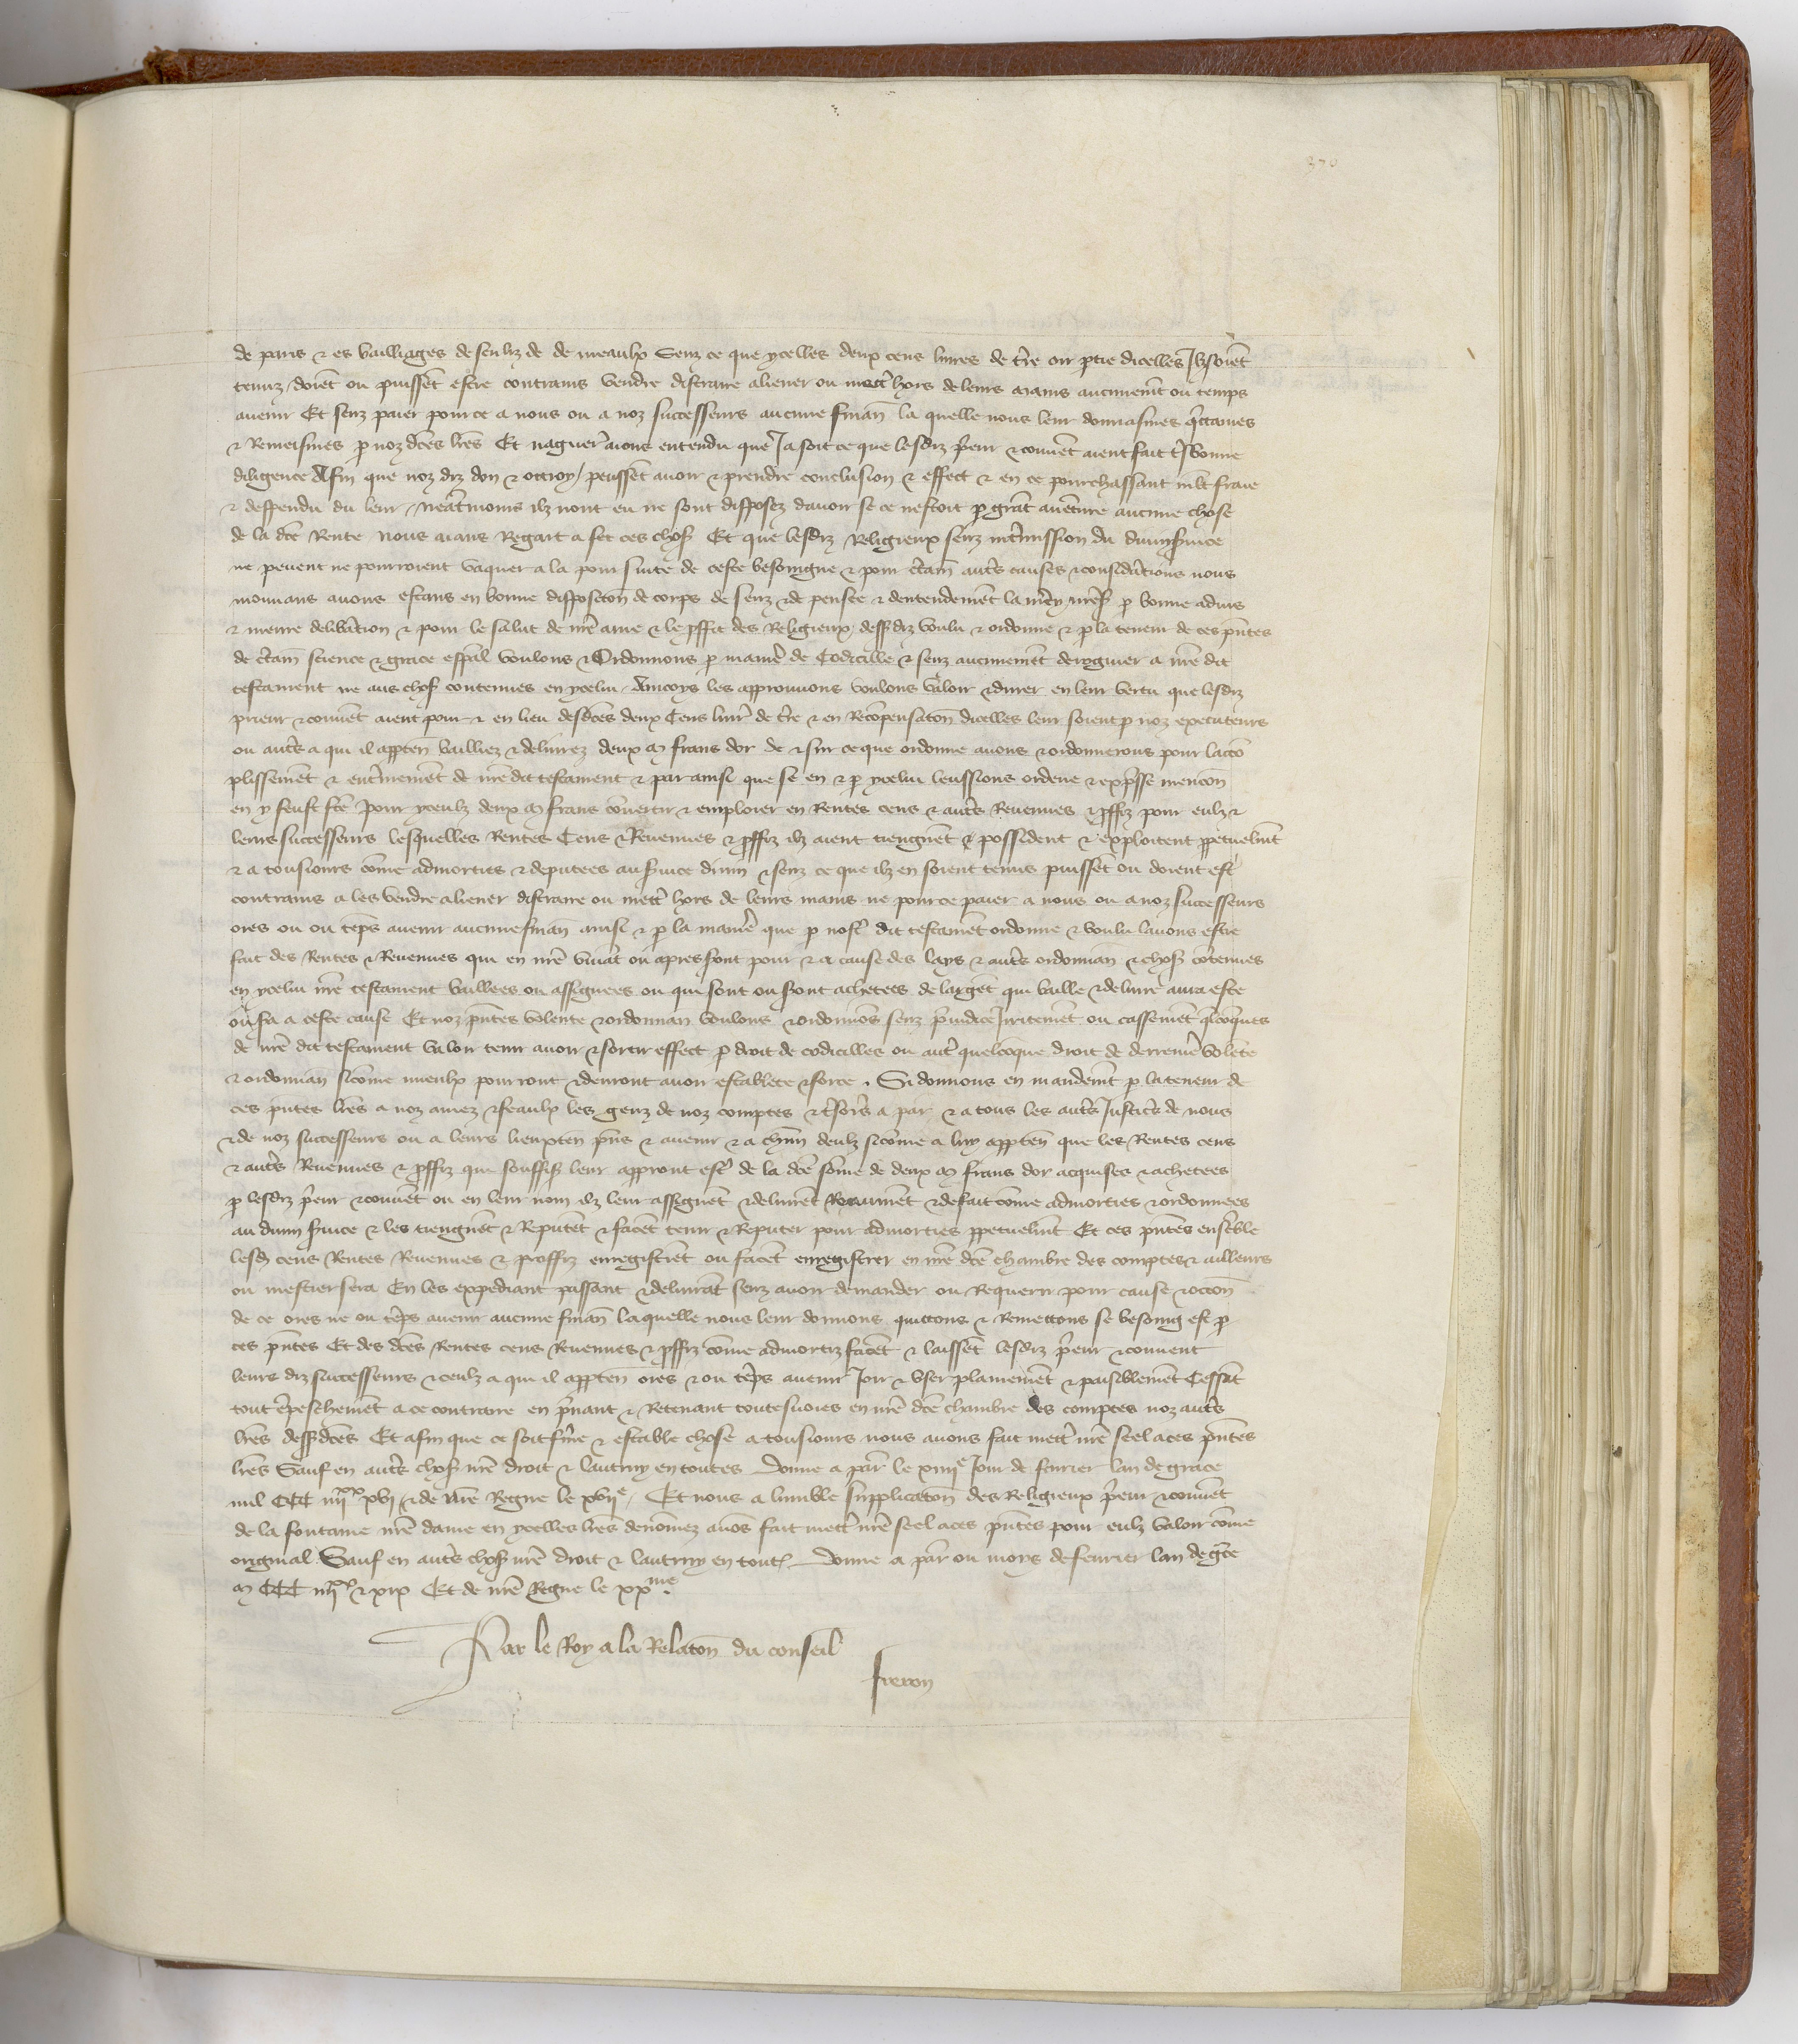 370
de paris ⁊ es bailliages de senliz de de meaulx Senz ce que ycelles deux cens livres de t̃re ou ptie dicelles Ilz soiẽt
tenuz doiẽt ou puissẽt estre contrains vendre distraire aliener ou mettr̃ hors de leurs mains aucunemẽt ou temps
avenir Et senz paier pour ce a nous ou a noz successeurs aucune finãn la quelle nous leur donnasmes q̃ttames
⁊ Remeismes p noz d̃ces lr̃es Et naguer̃ aions entendu que Ja soit ce que lesdiz p̃eur ⁊ couvẽt aient fait tr̃sbonne
diligence Afin que noz diz don ⁊ ottroy peussẽt avoir ⁊ prendre conclusion ⁊ effect ⁊ en ce pourchassant mlt̃ fraie
⁊ despendu du leur neãtmoins ilz nont eu ne sont disposez davoir se ce nestoit p grãt avẽture aucune chose
de la d̃ce Rente Nous aians Regart a ses ces chos̃ Et que lesdiz Religieux senz int̃mission du divin s̃vice
ne pevent ne pourroient vaquer a la poursuite de ceste besoingne ⁊ pour c̃tain autr̃s causes ⁊ consid̃acions nous
mouvans avons estans en bonne disposicõn de corps de senz ⁊ de pensee ⁊ dentendemẽt la m̃cy nr̃e s̃ p bonne advis
⁊ meure delib̃acion ⁊ pour le salut de nr̃e ame ⁊ le pffit des Religieux dess̃diz voulu ⁊ ordonne ⁊ p la teneur de ces p̃ntes
de c̃tain science ⁊ grace esp̃al voulons ⁊ Ordonnons p manier̃ de Codicille ⁊ senz aucunemẽt deroguier a nr̃e dit
testament ne aus chos̃ contenues en ycelui Aincoys les approuvons voulons valoir ⁊ durer en leur vertu que lesdiz
prieur ⁊ couvẽt aient pour ⁊ en lieu desd̃ces deux Cens livr̃ de t̃re ⁊ en Recõpensacõn dicelles leur soient p noz executeurs
ou autr̃s a qui il apptẽn bailliez ⁊ delivrez deux m frans dor de ⁊ sur ce que ordonne avons ⁊ ordonnerons pour lacõ
plissemẽt ⁊ ent̃inemẽt de nr̃e dit testament ⁊ par ainsi que se en ⁊ p ycelui leussions ordene ⁊ exp̃sse mencõn
en y feust fc̃e pour yceulx deux m frans cõvertir ⁊ emploier en Rentes cens ⁊ autr̃s Revenues ⁊ pffiz pour eulz ⁊
leurs successeurs lesquelles Rentes Cens ⁊ Revenues ⁊ pffiz ilz aient tiengnẽt ⁊ possident ⁊ exploitent ppetuelmt̃
⁊ a tousiours cõme admorties ⁊ deputees au s̃vice divin ⁊ senz ce que ilz en soient tenus puissẽt ou doient estr̃
contrains a les vendre aliener distraire ou mettr̃ hors de leurs mains ne pour ce paier a nous ou a noz successeurs
ores ou ou tẽps avenir aucune finãn ainsi ⁊ p la manier̃ que p nostr̃ dit testamẽt ordonne ⁊ voulu lavons estre
fait des Rentes ⁊ Revenues qui en nr̃e vivãt ou apres sont pour ⁊ a cause des lays ⁊ autr̃s ordonnãn ⁊ chos̃ cõtenues
en ycelui nr̃e testament baillees ou assignees ou qui sont ou s̃ont achetees de largẽt qui baille ⁊ delivre aura este
ou s̃a a ceste cause Et noz p̃ntes volente ⁊ ordonnan voulons ⁊ ordonnõs senz p̃iudice Irritemẽt ou cassemẽt qlcõques
de nr̃e dit testament valoir tenir avoir ⁊ sortir effect p droit de codicilles ou autr̃ quelcõque droit de derrenier̃ volẽte
⁊ ordonnãn sicõme mieulx pourront ⁊ devront avoir establete ⁊ force . Si donnons en mandemt̃ p la teneur de
ces p̃ntes lr̃es a noz amez ⁊ feaulx les genz de noz comptes ⁊ tr̃sors̃ a par̃ ⁊ a tous les autr̃s Justic̃s de nous
⁊ de noz successeurs ou a leurs lieuxten p̃ns ⁊ avenir ⁊ a chũn deulz sicõme a luy apptẽn que les Rentes cens
⁊ autr̃s Revenues ⁊ pffiz que souffis̃ leur appront estr̃ de la d̃ce sõme de deux m frans dor acquises ⁊ achetees
p lesdiz p̃eur ⁊ couvẽt ou en leur nom ilz leur assignẽt ⁊ delivrẽt Roiaumẽt ⁊ de fait cõme admorties ⁊ ordonnees
au divin s̃vice ⁊ les tiengnẽt ⁊ Reputẽt ⁊ facẽt tenir ⁊ Reputer pour admorties ppetuelmt̃ Et ces p̃ntes ensẽble
lesd̃ cens Rentes Revenues ⁊ proffiz enregistrẽt ou facẽt enregistrer en nr̃e d̃ce chambre des comptes ⁊ ailleurs
ou mestier sera En les expediant passant ⁊ delivrãt senz avoir demander ou Requerir pour cause ⁊ occon
de ce ores ne ou tẽps avenir aucune finãn laquelle nous leur donnons quittons ⁊ Remettons se besoing est p
ces p̃ntes Et des d̃ces Rentes cens Revenues ⁊ pffiz cõme admortiz facẽt ⁊ laissẽt lesdiz p̃eur ⁊ couvent
leurs diz successeurs ⁊ ceulz a qui il apptẽn ores ⁊ ou tẽps avenir Joir ⁊ user plainemẽt ⁊ paisiblemẽt Cessãt
tout ẽpeschemẽt a ce contraire en p̃nant ⁊ Retenant toutesvoies en nr̃e d̃ce chambre des comptes noz autr̃s
lr̃es dess̃d̃ces Et afin que ce soit fr̃me ⁊ estable chose a tousiours nous avons fait mettr̃ nr̃e seel a ces p̃ntes
lr̃es Sauf en autr̃s chos̃ nr̃e droit ⁊ lautruy en toutes Donne a par̃ le xiiiiᵉ Jour de fevrier lan de grace
mil CCC iiiiˣˣ xvi ⁊ de nr̃e Regne le xviiᵉ / Et nous a lumble supplicacõn des Religieux p̃eur ⁊ couvẽt
de la fontaine nr̃e dame en ycelles lr̃es denõmez avõs fait mettr̃ nr̃e seel a ces p̃ntes pour eulz valoir cõme
original Sauf en autr̃s chos̃ nr̃e droit ⁊ lautruy en tout̃ Donne a par̃ ou moys de fevrier lan de gr̃ce
m CCC iiiiˣˣ ⁊ xix Et de nr̃e Regne le xxᵐᵉ.
Par le Roy a la Relacõn du conseil
freron